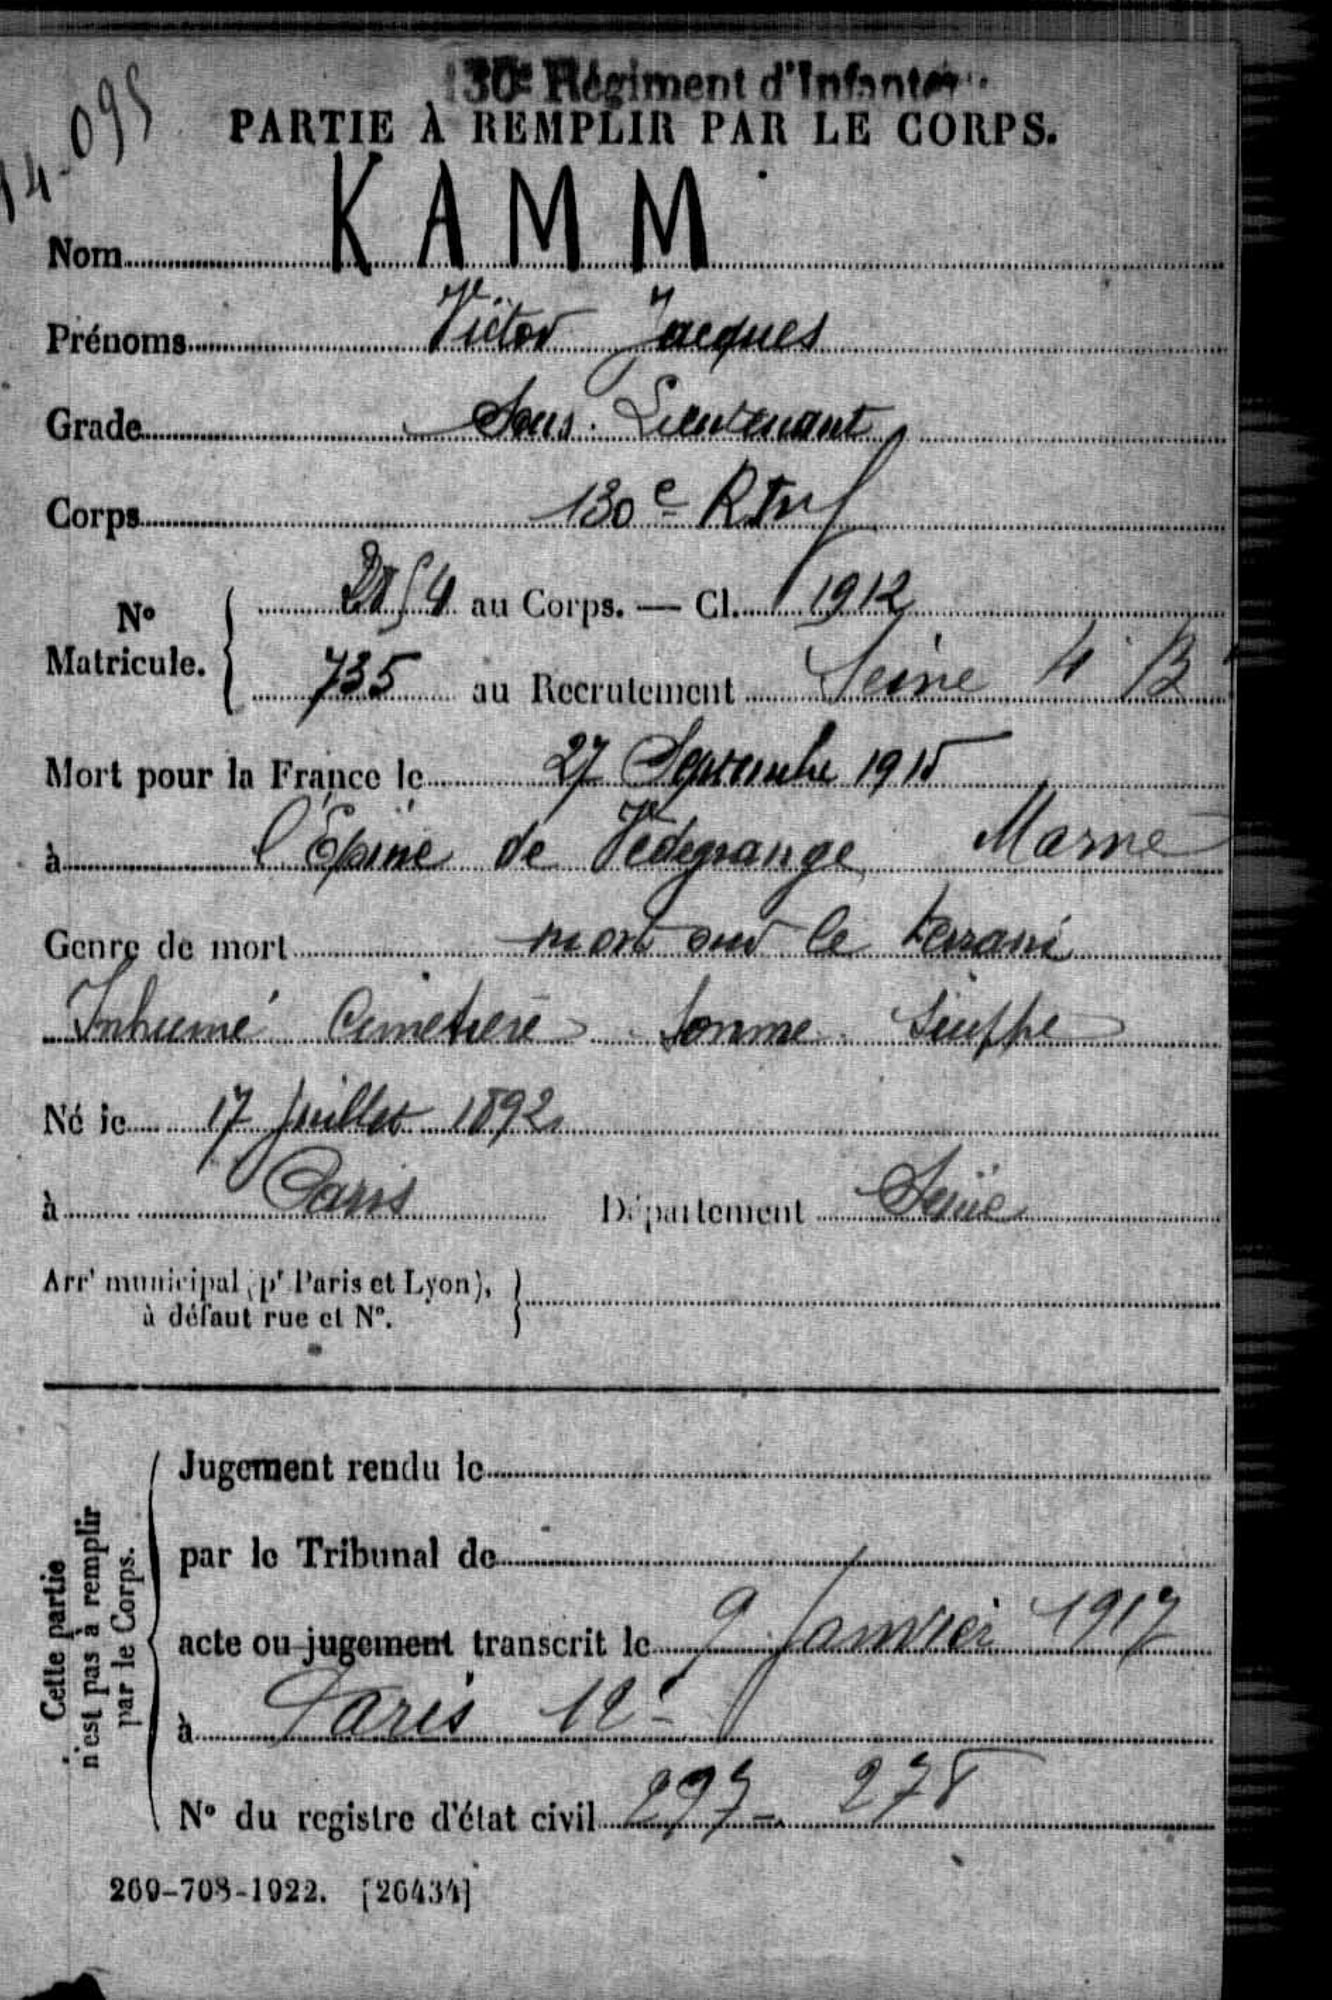 130e Régiment d'Infanterie
14-095
PARTIE À REMPLIR PAR LE CORPS.
Nom KAMM
Prénoms Victor Jacques
Grade Sous-Lieutenant
Corps 130e R Inf
No Matricule. { au Corps. — Cl. 1912
735 au Recrutement Seine 4e B
Mort pour la France le 27 Septembre 1915
à l'Epine de Védegrange Marne
Genre de mort mort sur le terrain
Inhumé Cimetière Somme Suippe
Né le 17 Juillet 1892
à Paris Département Seine
Arrt municipal (pr Paris et Lyon), }
à défaut rue et No.
Cette partie n'est pas à remplir par le Corps.
Jugement rendu le
par le Tribunal de
acte ou jugement transcrit le 9 Janvier 1917
à Paris 12e
No du registre d'état civil 278
269-708-1922. [26434]